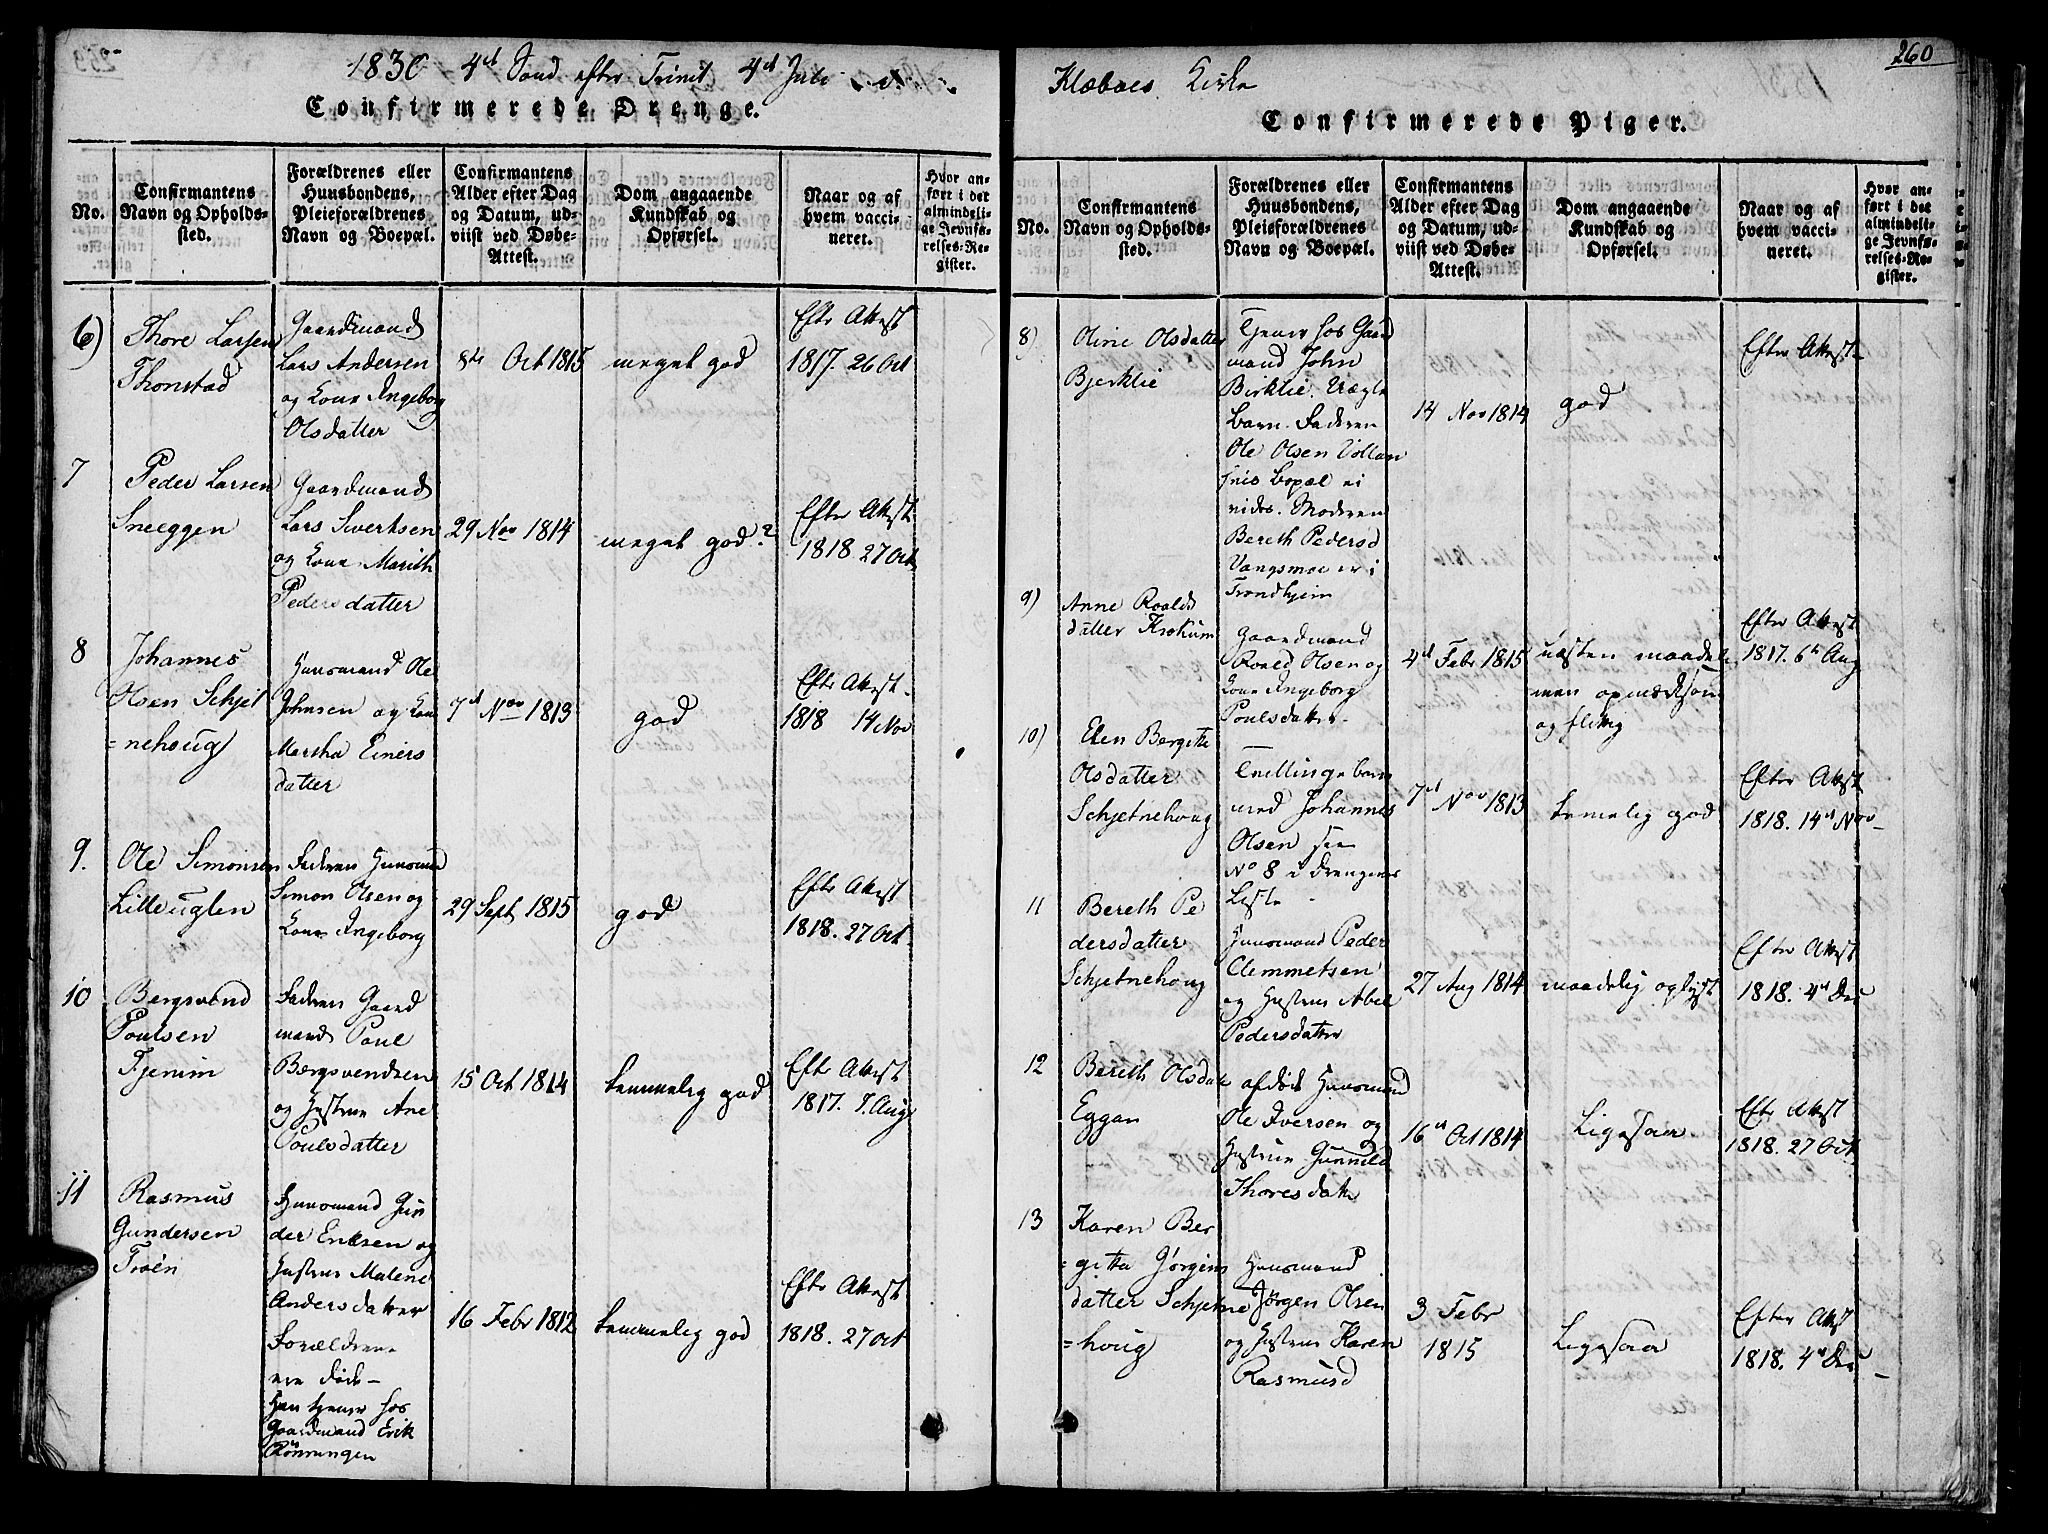 260
1830 4d Sønd efter Trinit 4d Juli
Confirmerede Drenge.
No.
Confirmantens
Navn og Opholds-
sted.
Forældrenes eller
Huusbondens,
Pleieforældrenes
Navn og Boepæl.
Confirmantens
Alder efter Dag
og Datum, ud-
viist ved Døbe-
Attest.
Dom angaaende
Kundskab og
Opførsel.
Naar og af
hvem vacci-
neret.
Hvor an-
ført i det
almindeli-
ge Jevnfø-
relses-Re-
gister.
6)
Thore Larsen
Thonstad
Gaardmand
Lars Andersen
og Kone Ingeborg
Olsdatter
8de Oct 1815
meget god
Efter Attest
1817. 26 Oct
7
Peder Larsen
Sneeggen
Gaardmand
Lars Sivertsen
og Kone Marith
Pedersdatter
29 Nov 1814
meget god?
Efter Attest
1818 27 Oct
8
Johannes
Olsen Schjet
=nehoug
Huusmand Ole
Johnsen og Kone
Martha Einers
datter
7d Nov 1813
god
Efter Attest
1818 14 Nov
9.
Ole Simonsen
Lilleuglen
Faderen Huusmand
Simon Olsen og
Kone Ingeborg
29 Sept 1815
god
Efter Attest
1818. 27 Oct
10
Bergsvend
Poulsen
Tjenim
Faderen Gaard
mand Poul
Bergsvendsen
og Hustrue Ane
Poulsdatter
15 Oct 1814
temmelig god
Efter Attest
1817. 7. Aug
11
Rasmus
Gundersen
Troen
Huusmand Gun
der Ericsen og
Hustrue Malene
Andersdatter
Forældrene
ere døde-
Han tjener hos
Gaardmand Erik
Rönningen
16 Febr 1812
temmelig god
Efter Attest
1818. 27 Oct
Klæboes Kirke
Confirmerede Piger.
No.
Confirmantens
Navn og Opholds-
sted.
Forældrenes eller
Huusbondens,
Pleieforældrenes
Navn og Boepæl.
Confirmantens
Alder efter Dag
og Datum, ud-
viist ved Døbe-
Attest.
Dom angaaende
Kundskab og
Opførsel.
Naar og af
hvem vacci-
neret.
Hvor an-
ført i det
almindeli-
ge Jevnfø-
relses-Re-
gister.
8)
Oline Olsdatter
Bjerklie
Tjener hos Gaard
mand John
Birklie. Uægte
Barn. Faderen
Ole Olsen
hvis Bopæl ei
vides. Moderen
Bereth Pedersd
Vangsmoe er i
Trondhjem
14 Nov 1814
god
Efter Attest
9)
Anne Roalds
datter Krokum
Gaardmand
Roald Olsen og
Kone Ingeborg
Poulsdatter
4d Febr 1815
næsten maadel
men opmærksom
og flittig
Efter Attest
1817. 6te Aug
10)
Elen Bergitte
Olsdatter
Schjetnehoug
Tvillingebarn
med Johannes
Olsen see
No 8 i Drengenes
Liste
7d Nov 1813
temelig god
Efter Attest
1818. 14d Nov
11
Bereth Pe
dersdatter
Schjetnehoug
Huusmand Peder
Clemmetsen
og Hustrue Abel
Pedersdatter
27 Aug 1814
maadelig oplyst
Efter Attest
1818. 4d Dec
12
Bereth Olsdatter
Eggan
afdøde Huusmand
Ole Iversen og
Hustrue Gunnild
Thoresdatter
16d Oct 1814
Ligesaa
Efter Attest
1818. 27 Oct
13
Karen Ber
=gitta Jørgens
datter Schjetne
=houg
Huusmand
Jørgen Olsen
og Hustrue Karen
Rasmusd
3 Febr
1815
Ligesaa
Efter Attest
1818. 4d Dec